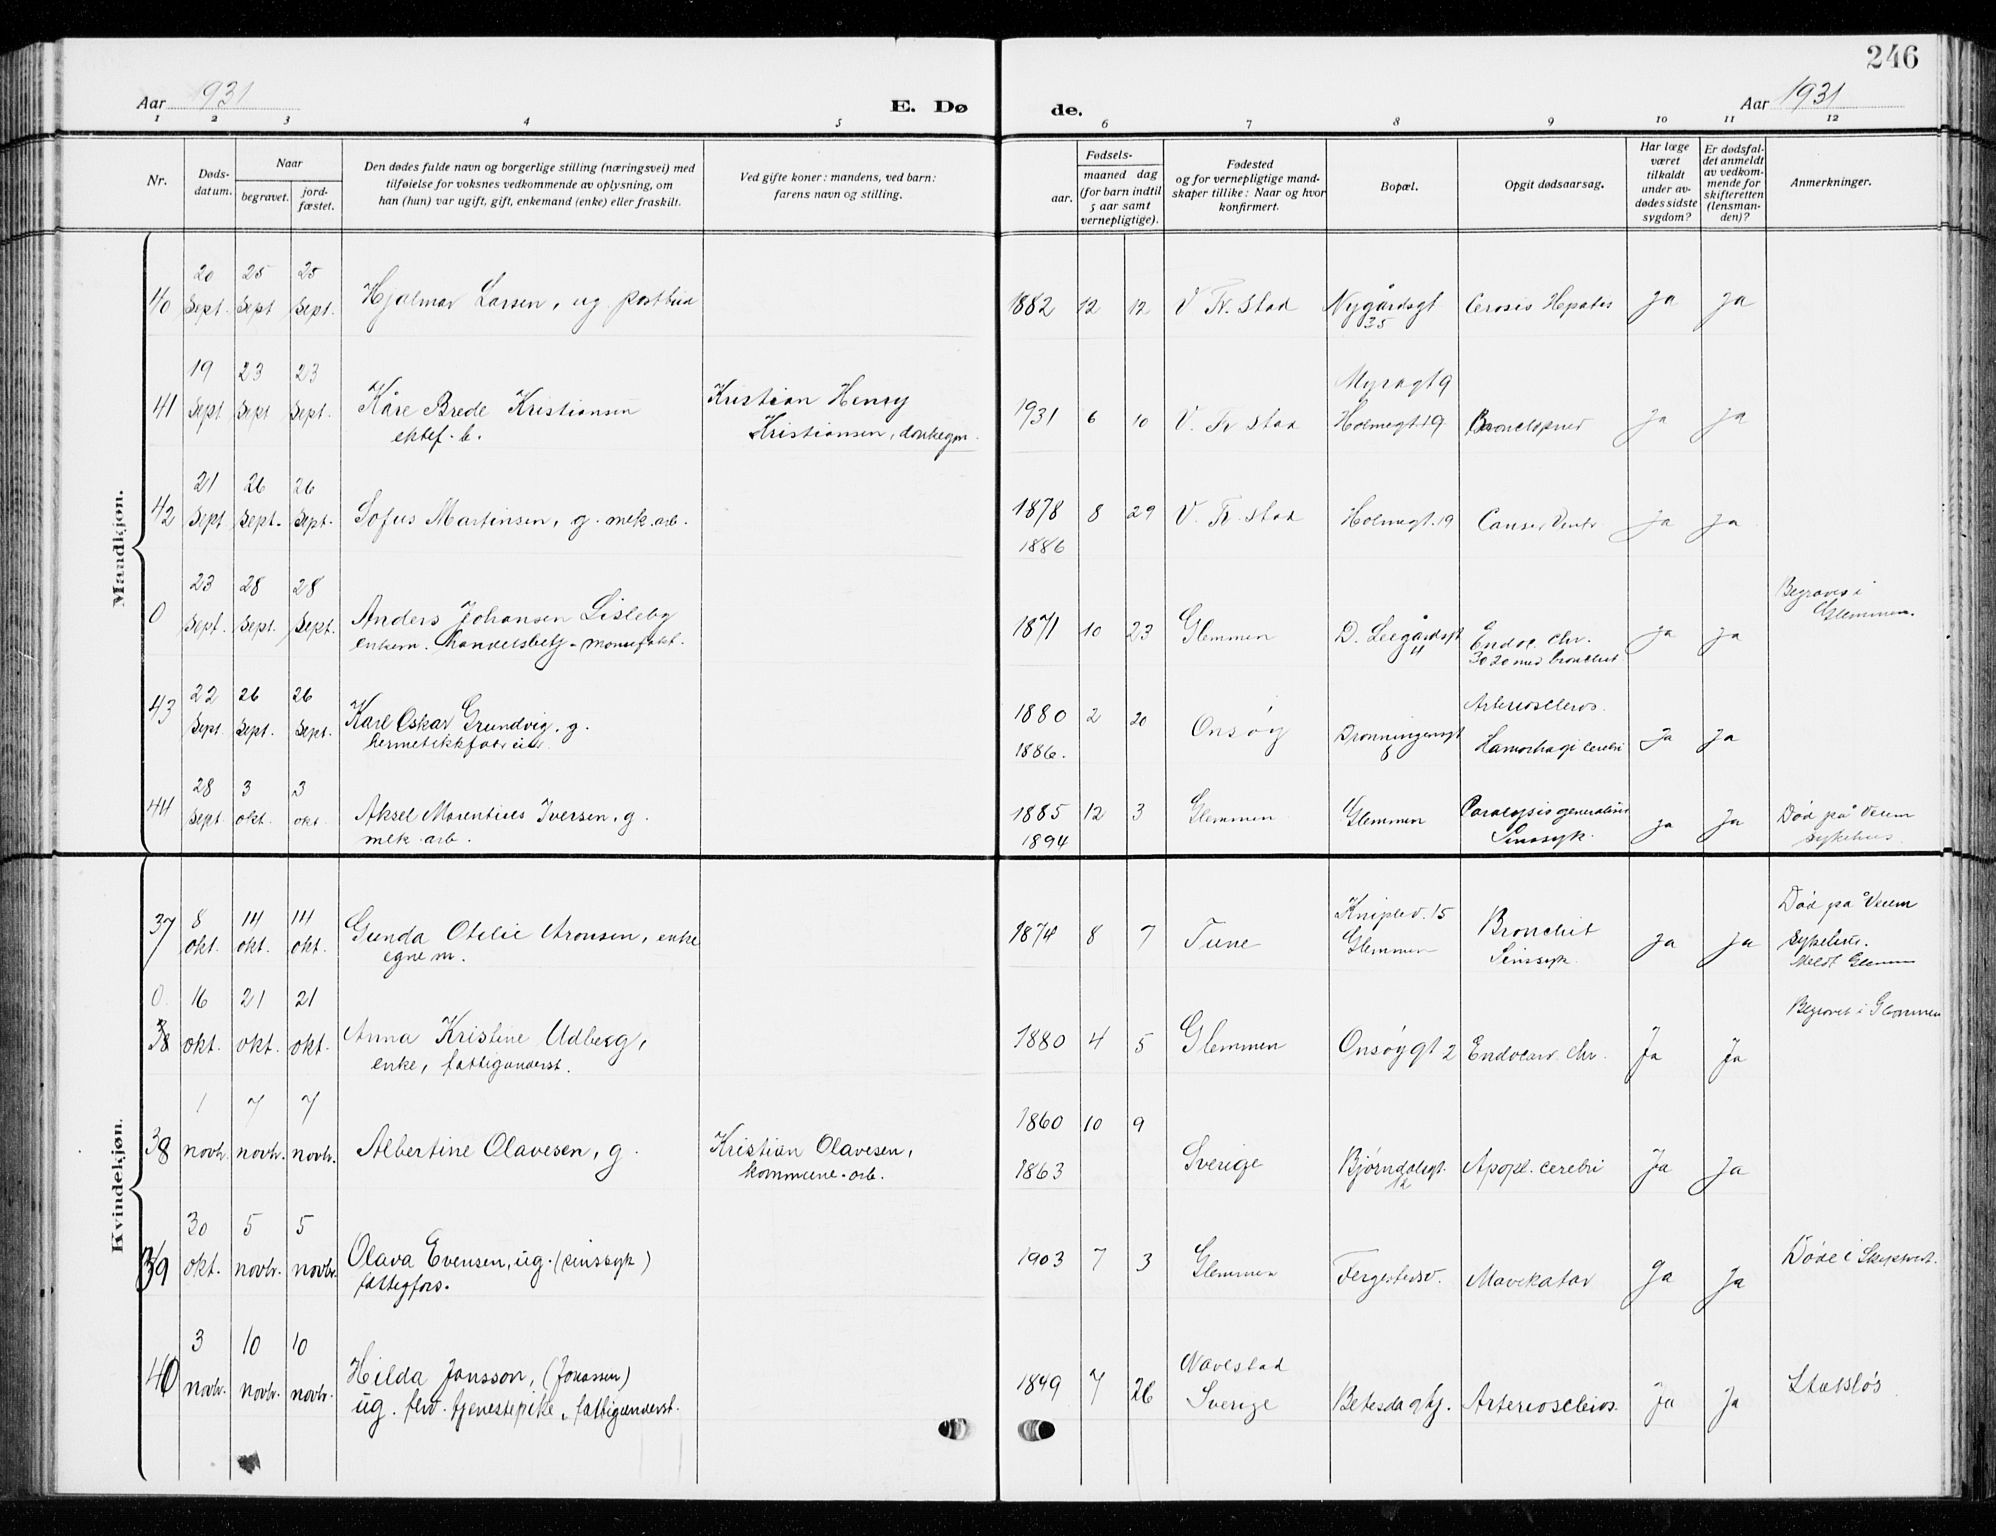 246
Aar 1931
E. Dø
de.
Aar 1931
1 2 3 4 5 6 7 8 9 10 11 12
Nr.
Døds-
datum.
Naar
begravet.
jord-
fæstet.
Den dødes fulde navn og borgerlige stilling (næringsvei) med
tilføielse for voksnes vedkommende av oplysning, om
han (hun) var ugift, gift, enkemand (enke) eller fraskilt.
Ved gifte koner: mandens, ved barn:
farens navn og stilling.
Fødsels-
aar.
maaned dag
(for barn indtil
5 aar samt
vernepligtige).
Fødested
og for vernepligtige mand-
skaper tillike: Naar og hvor
konfirmert.
Bopæl.
Opgit dødsaarsag.
Har læge
været
tilkaldt
under av-
dødes sidste
sygdom?
Er dødsfal-
det anmeldt
av vedkom-
mende for
skifteretten
(lensman-
den)?
Anmerkninger.
Mandkjøn.
20 25 25
40 Sept. Sept Sept. Hjalmar Larsen, ug. postbud 1882 12 12 V. Fr. stad Nygårdsgt Cerosis Hepatis Ja Ja
35
19 23 23
Myragt 9
41 Sept Sept Sept. Kåre Brede Kristiansen Kristian Henry 1931 6 10 V. Fr stad Holmegt 19 Ja Ja
ektef. b. Kristiansen,
21 26 26
42 Sept Sept. Sept. Sofus Martinsen, g. mek. arb. 1878 8 29 V. Fr. stad Holmegt. 19 Ja Ja
1886
23 28 28 Begraves i
Glemmen.
0 Sept. Sept. Sept. Anders Johansen Lisleby 1871 10 23 Glemmen D. Leegårdsgt Endoc. chr. Ja Ja
enkem. handelsbetj. 4
22 26 26 Arterioscleros.
43 Sept Sept. Sept. Karl Oskar Grundvig, g. 1880 2 20 Onsøy Dronningensgt Hamorhagi cerebri Ja Ja
1886. 8
28 3 3
44 Sept okt. okt. Aksel Iversen, g. 1885 12 3 Glemmen Glemmen Paralysis generalis Ja Ja Død på Veum
mek. arb. 1894 Sinssyk. sykehus
Kvindekjøn.
37 8 14 14 Kniplev. 15 Død på Veum
okt. okt. okt. Gunda Otelie Aronsen, enke 1874 8 7 Tune Glemmen Bronchit Ja Ja sykehus.
egne m. Sinssyk. Meldt Glemm
0. 16 21 21 Begravet i Glemmen
38 okt. okt. okt. Anna Kristine Udberg, 1880 4 5 Glemmen Onsøygt 2 Endocar. chr. Ja Ja
enke, fattigunderst.
1 7 7 1860 10 9
38 novbr. novbr. novbr. Albertine Olavesen, g. Kristian Olavesen, 1863 Sverige Bjørndalegt. Apopl. cerebri Ja Ja
kommune-arb. 12
30 5 5
39 okt. novbr. novbr. Olava Evensen, ug. (sinssyk) 1903 7 3 Glemmen Fergestedsv. Mavekatar Ja Ja Døde i
fattigfors.
3 10 10 Navestad
40 novbr. novbr. novbr. Hilda Jansson, (Jonassen) 1849 7 26 Sverige Betesda Arterioscleros. Ja Ja Statsløs
ug. fhv. tjenestepike, fattigunderst.